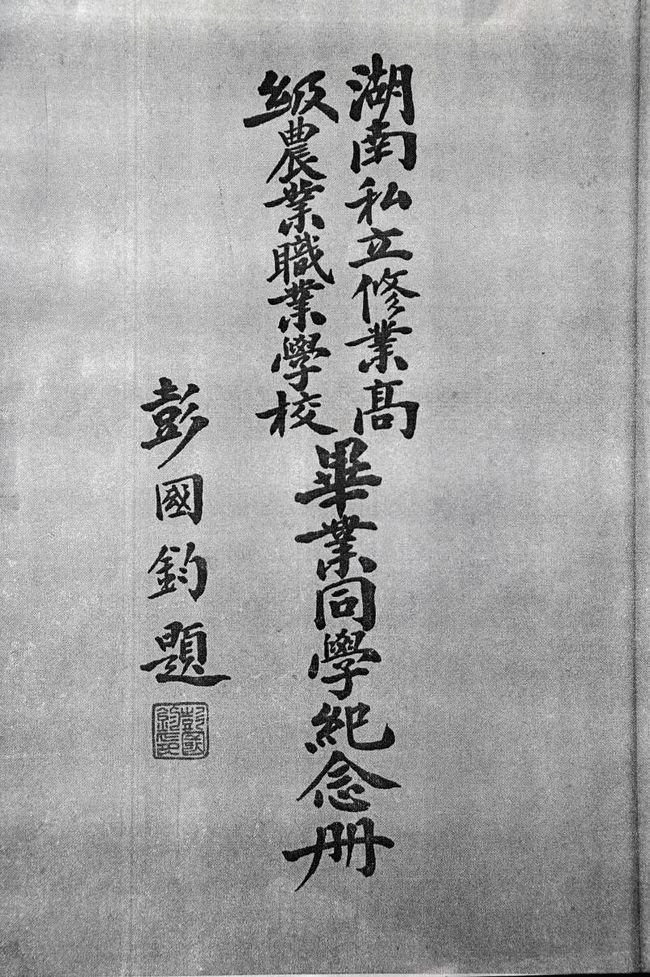 湖南私立修業高
級農業職業學校
畢業同學紀念册
彭國鈞題
彭國鈞印